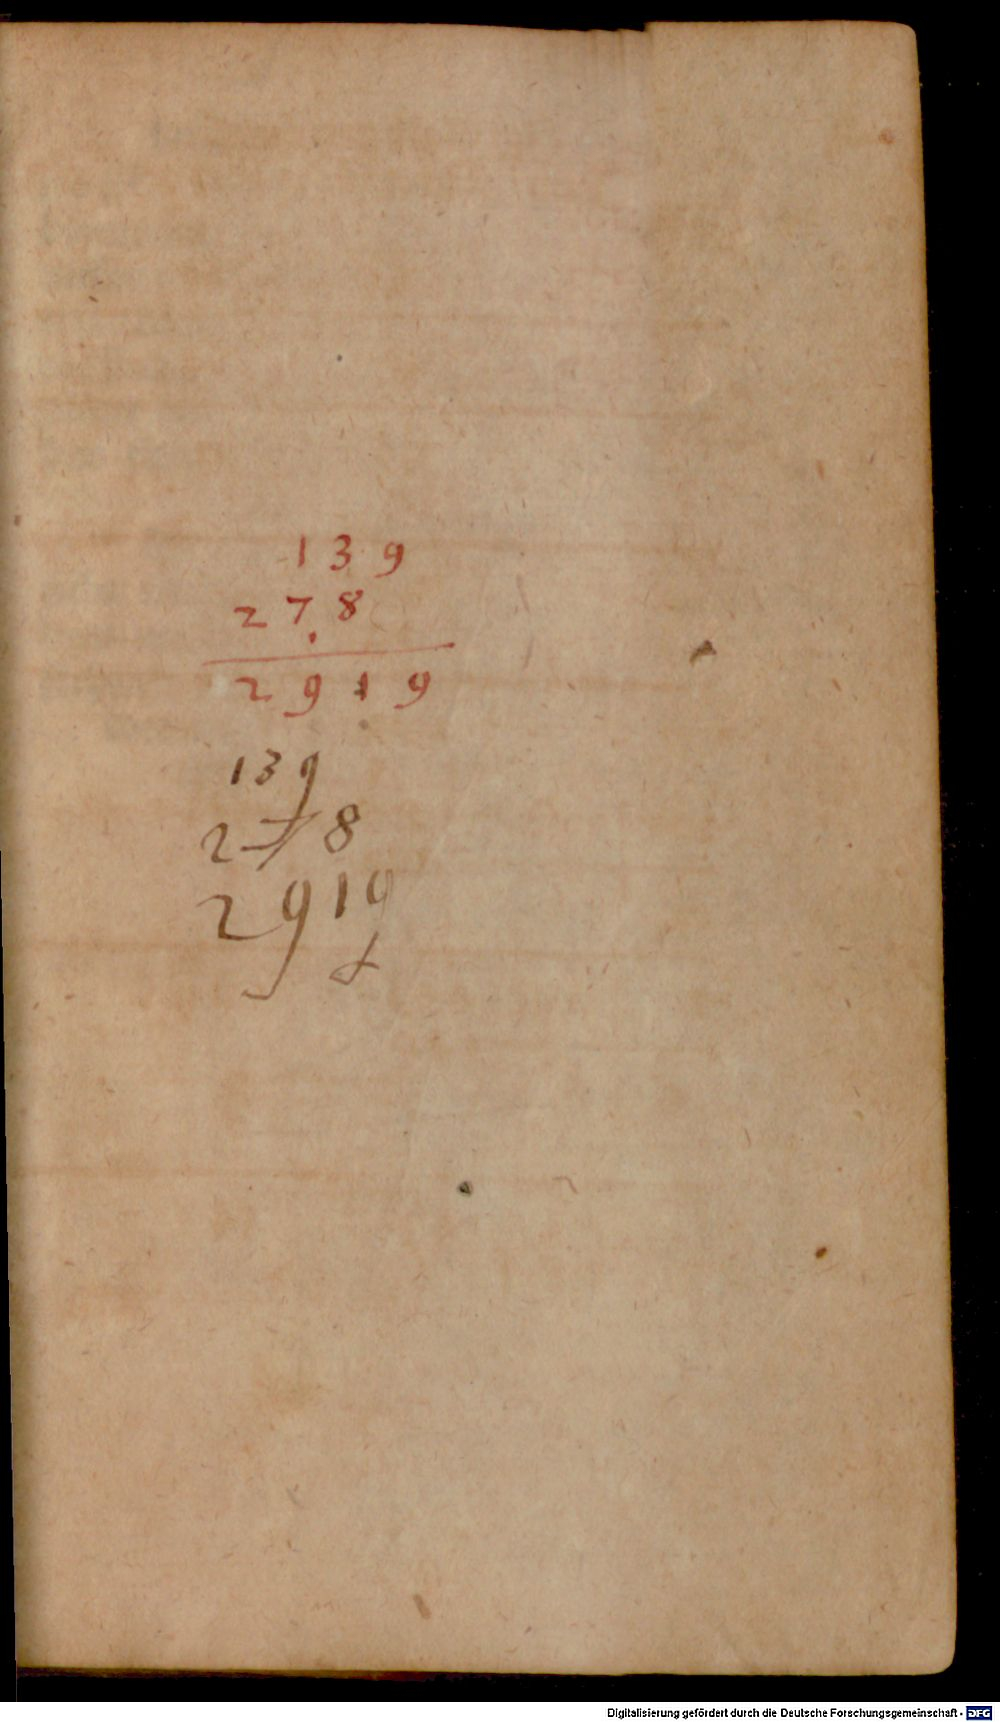 1 3 9
2 7 8
2 9 1 9
139
2 7 8
2919
Digitalisierung gefördert durch die Deutsche Forschungsgemeinschaft - DFG